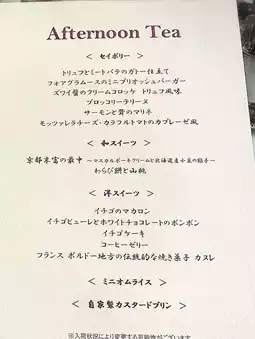 Afternoon Tea
< セイボリー >
トリュフとミートパテのガトー仕立て
フォアグラムースのミニブリオッシュバーガー
ズワイ蟹のクリームコロッケ トリュフ風味
ブロッコリーテリーヌ
サーモンと菁のマリネ
モッツァレラチーズ・カラフルトマトのカプレーゼ風
< 和スイーツ >
京都末富の最中 ～マスカルポーネクリームと北海道産小豆の餡子～
わらび餅と山桃
< 洋スイーツ >
イチゴのマカロン
イチゴピューレとホワイトチョコレートのボンボン
イチゴケーキ
コーヒーゼリー
フランス ボルドー地方の伝統的な焼き菓子 カヌレ
< ミニオムライス >
< 自家製カスタードプリン >
※入荷状況により変更する可能性がございます